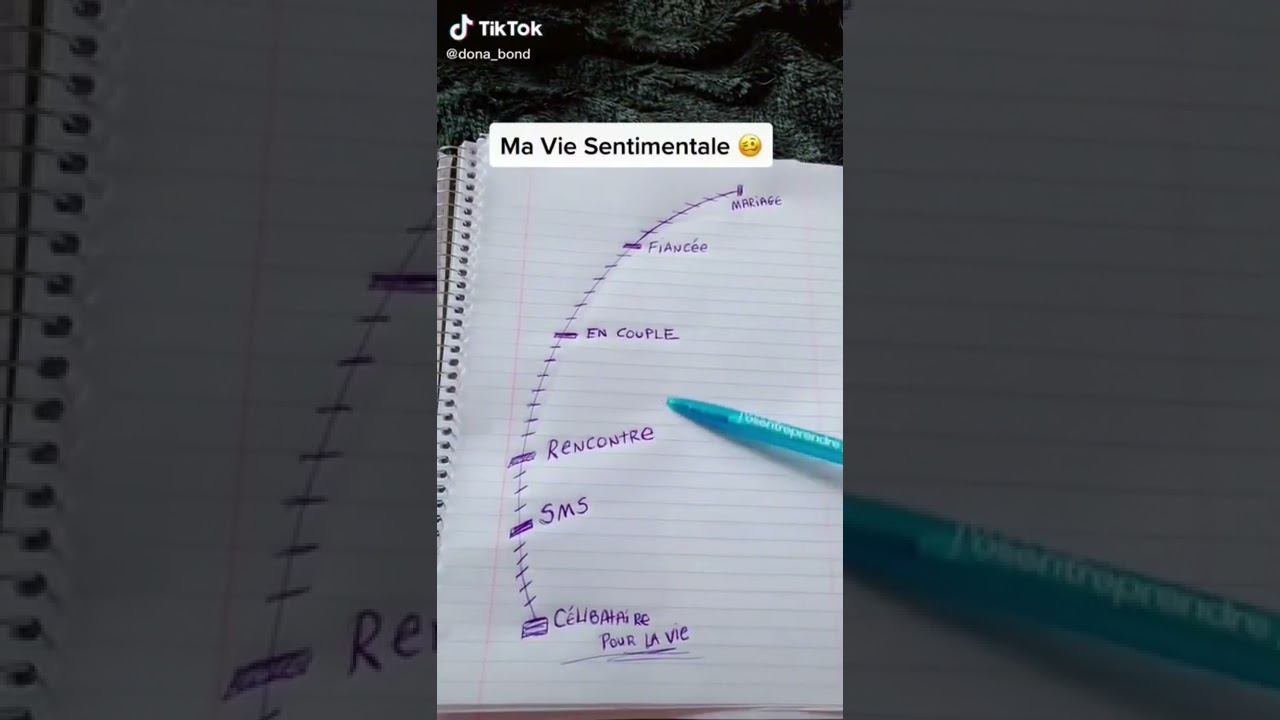 TikTok
@dona_bond
Ma Vie Sentimentale 🥴
MARIAGE
FIANCÉE
EN COUPLE
RENCONTRE
J'osentreprendre
SMS
CÉLIBATAIRE
POUR LA VIE